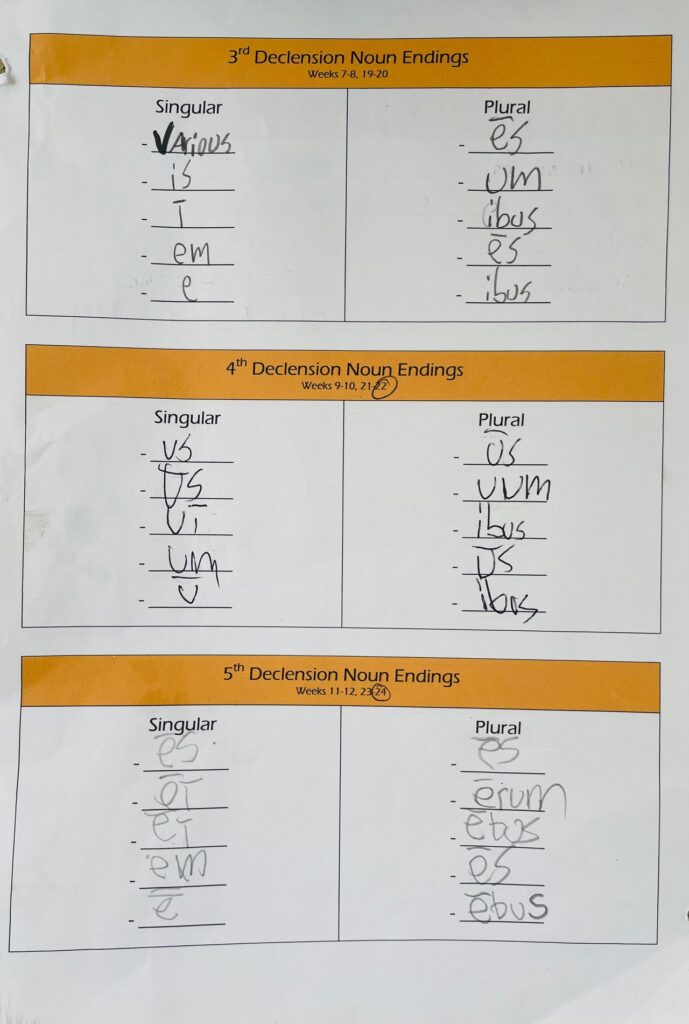 3rd Declension Noun Endings
Weeks 7-8, 19-20
Singular Plural
- various - ēs
- is - um
- ī - ibus
- em - ēs
- e - ibus
4th Declension Noun Endings
Weeks 9-10, 21-22
Singular Plural
- us - ūs
- ūs - uum
- uī - ibus
- um - ūs
- ū - ibus
5th Declension Noun Endings
Weeks 11-12, 23-24
Singular Plural
- ēs - ēs
- ēī - ērum
- ēī - ēbus
- em - ēs
- ē - ēbus